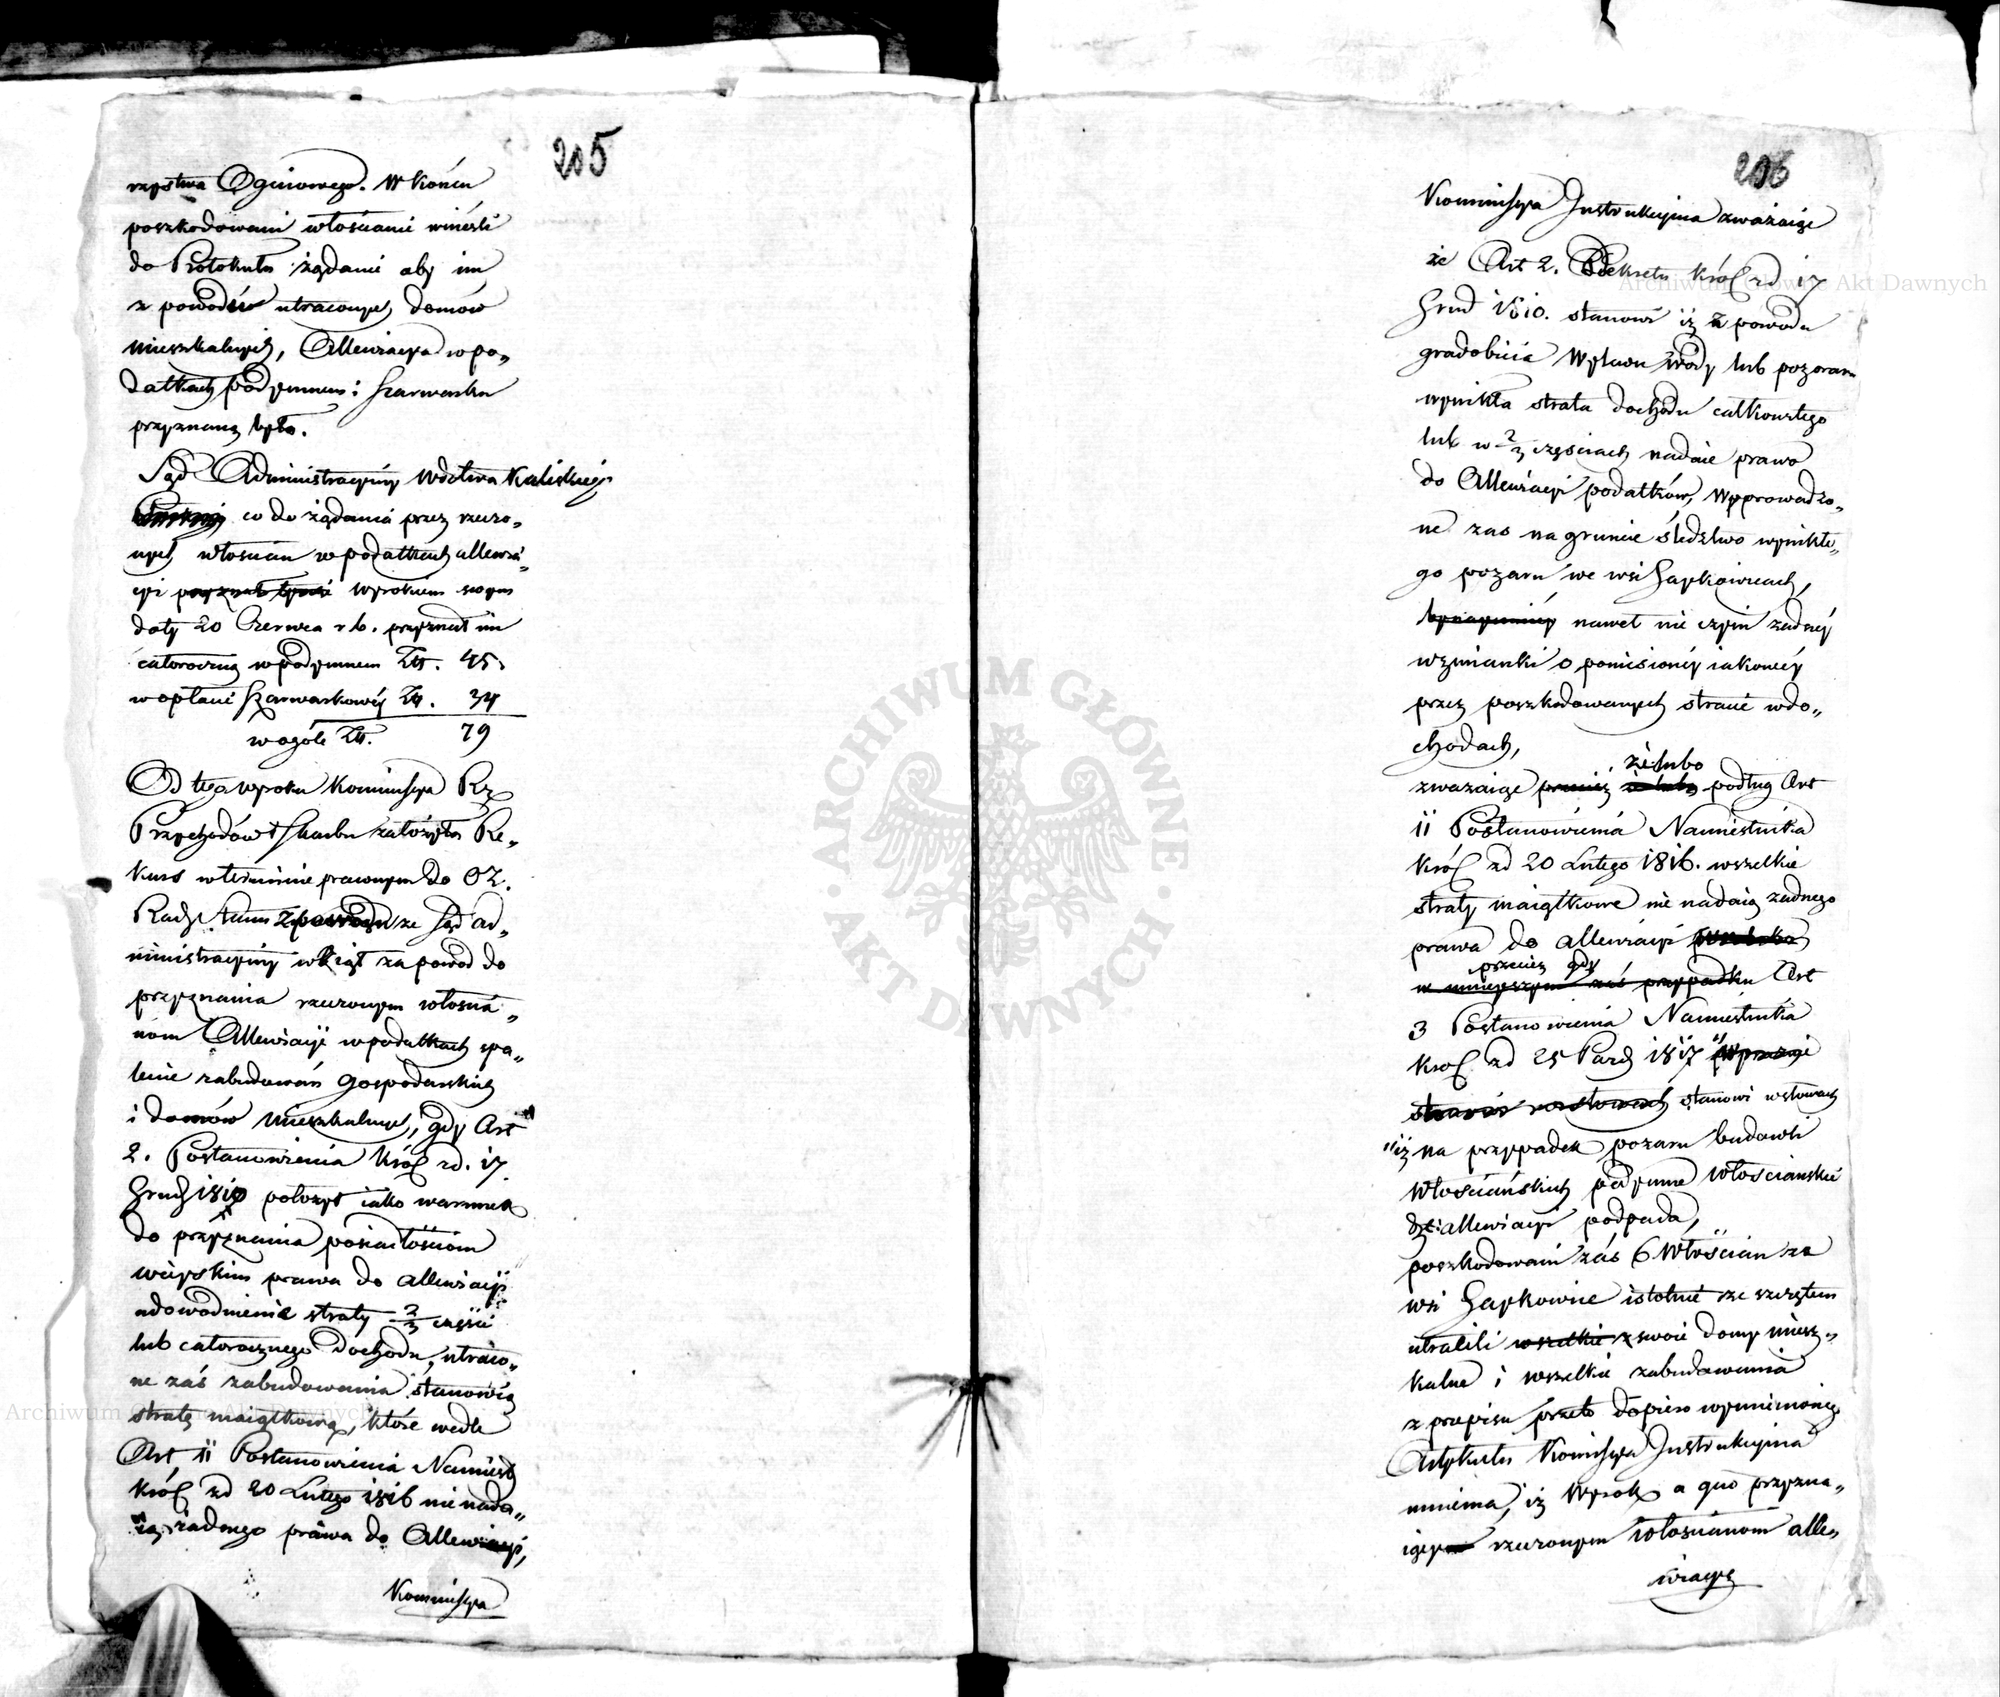 205
rzystwa Ogniowego. W końcu
poszkodowani włościanie wnieśli
do Protokułu żądanie aby im
z powodów utraconych domów
mieszkalnych, Allewiacya w po„
datkach podymnem i Szarwarku
przyznaną była.
Sąd Administracyiny Wdztwa Kaliskiego
co do żądania przez rzeczo„
nych włościan w podatkach allewia„
cyi przyznał tymże wyrokiem swym
daty 20 Czerwca r. b. przyznał im
całoroczną w podymnem Złt. 45.
w opłacie Szarwarkowéy Złt. 34
w ogóle Złt. 79
Od tego wyroku Kommissya Rz
Przychodów i Skarbu założyła Re„
kurs w terminie prawnym do OZ.
Rady Stanu z powodu że Sąd ad„
ministracyiny wziął za powod do
przyznania rzeczonym włościa„
nom Allewiacyi w podatkach spa„
lenie zabudowań gospodarskich
i domów mieszkalnych, gdy Art
2. Postanowienia Król zd. 17
Grud 1810 położył iako warunek
do przyznania posiadłościom
wieyskim prawa do allewiacyi
udowodnienie straty 2/3 części
lub całorocznego dochodu, utraco„
ne zaś zabudowania stanowią
stratę maiątkową, które wedle
Art 11 Postanowienia Namiest
Król zd 20 Lutego 1816 nie nada„
ią żadnego prawa do Allewiacyi,
Kommissya
206
Kommissya Instrukcyina zważaiąc
że Art 2. Dekretu Król zd 17
Grud 1810. stanowi iż z powodu
gradobicia Wylewu wody lub pożaru
wynikła strata dochodu całkowitego
lub w 2/3 częściach nadaie prawo
do Allewiacyi podatków, Wyprowadzo„
ne zaś na gruncie śledztwo wynikłe„
go pożaru we wsi Gaykowicach,
bynaymniéy nawet nie czyni żadnéy
wzmianki o poniesionéy iakowéy
przez poszkodowanych stracie w do„
chodach,
że lubo
zważaiąc przecież iż lubo podług Art
11 Postanowienia Namiestnika
Król zd 20 Lutego 1816. wszelkie
straty maiątkowe nie nadaią żadnego
prawa do allewiacyi
przecież gdy
w ninieyszym zaś przypadku Art
3 Postanowienia Namiestnika
Krol zd 25 Paźd 1817
stanowi w słowach
„iż na przypadek pożaru budowli
Włościańskich podymne Włościańskie
do allewiacyi podpada,
poszkodowani zaś 6 Włościan ze
wsi Gaykowice istotnie ze szczętem
utracili wszelkie swoie domy miesz„
kalne i wszelkie zabudowania
z przepisu przeto dopiero wymienionego
Artykułu Kommissya Instrukcyina
mniema, iż Wyrok a quo przyzna„
iący rzeczonym włościanom alle„
wiacyę
Archiwum Główne Akt Dawnych
ARCHIWUM GŁÓWNE
AKT DAWNYCH
Archiwum Główne Akt Dawnych